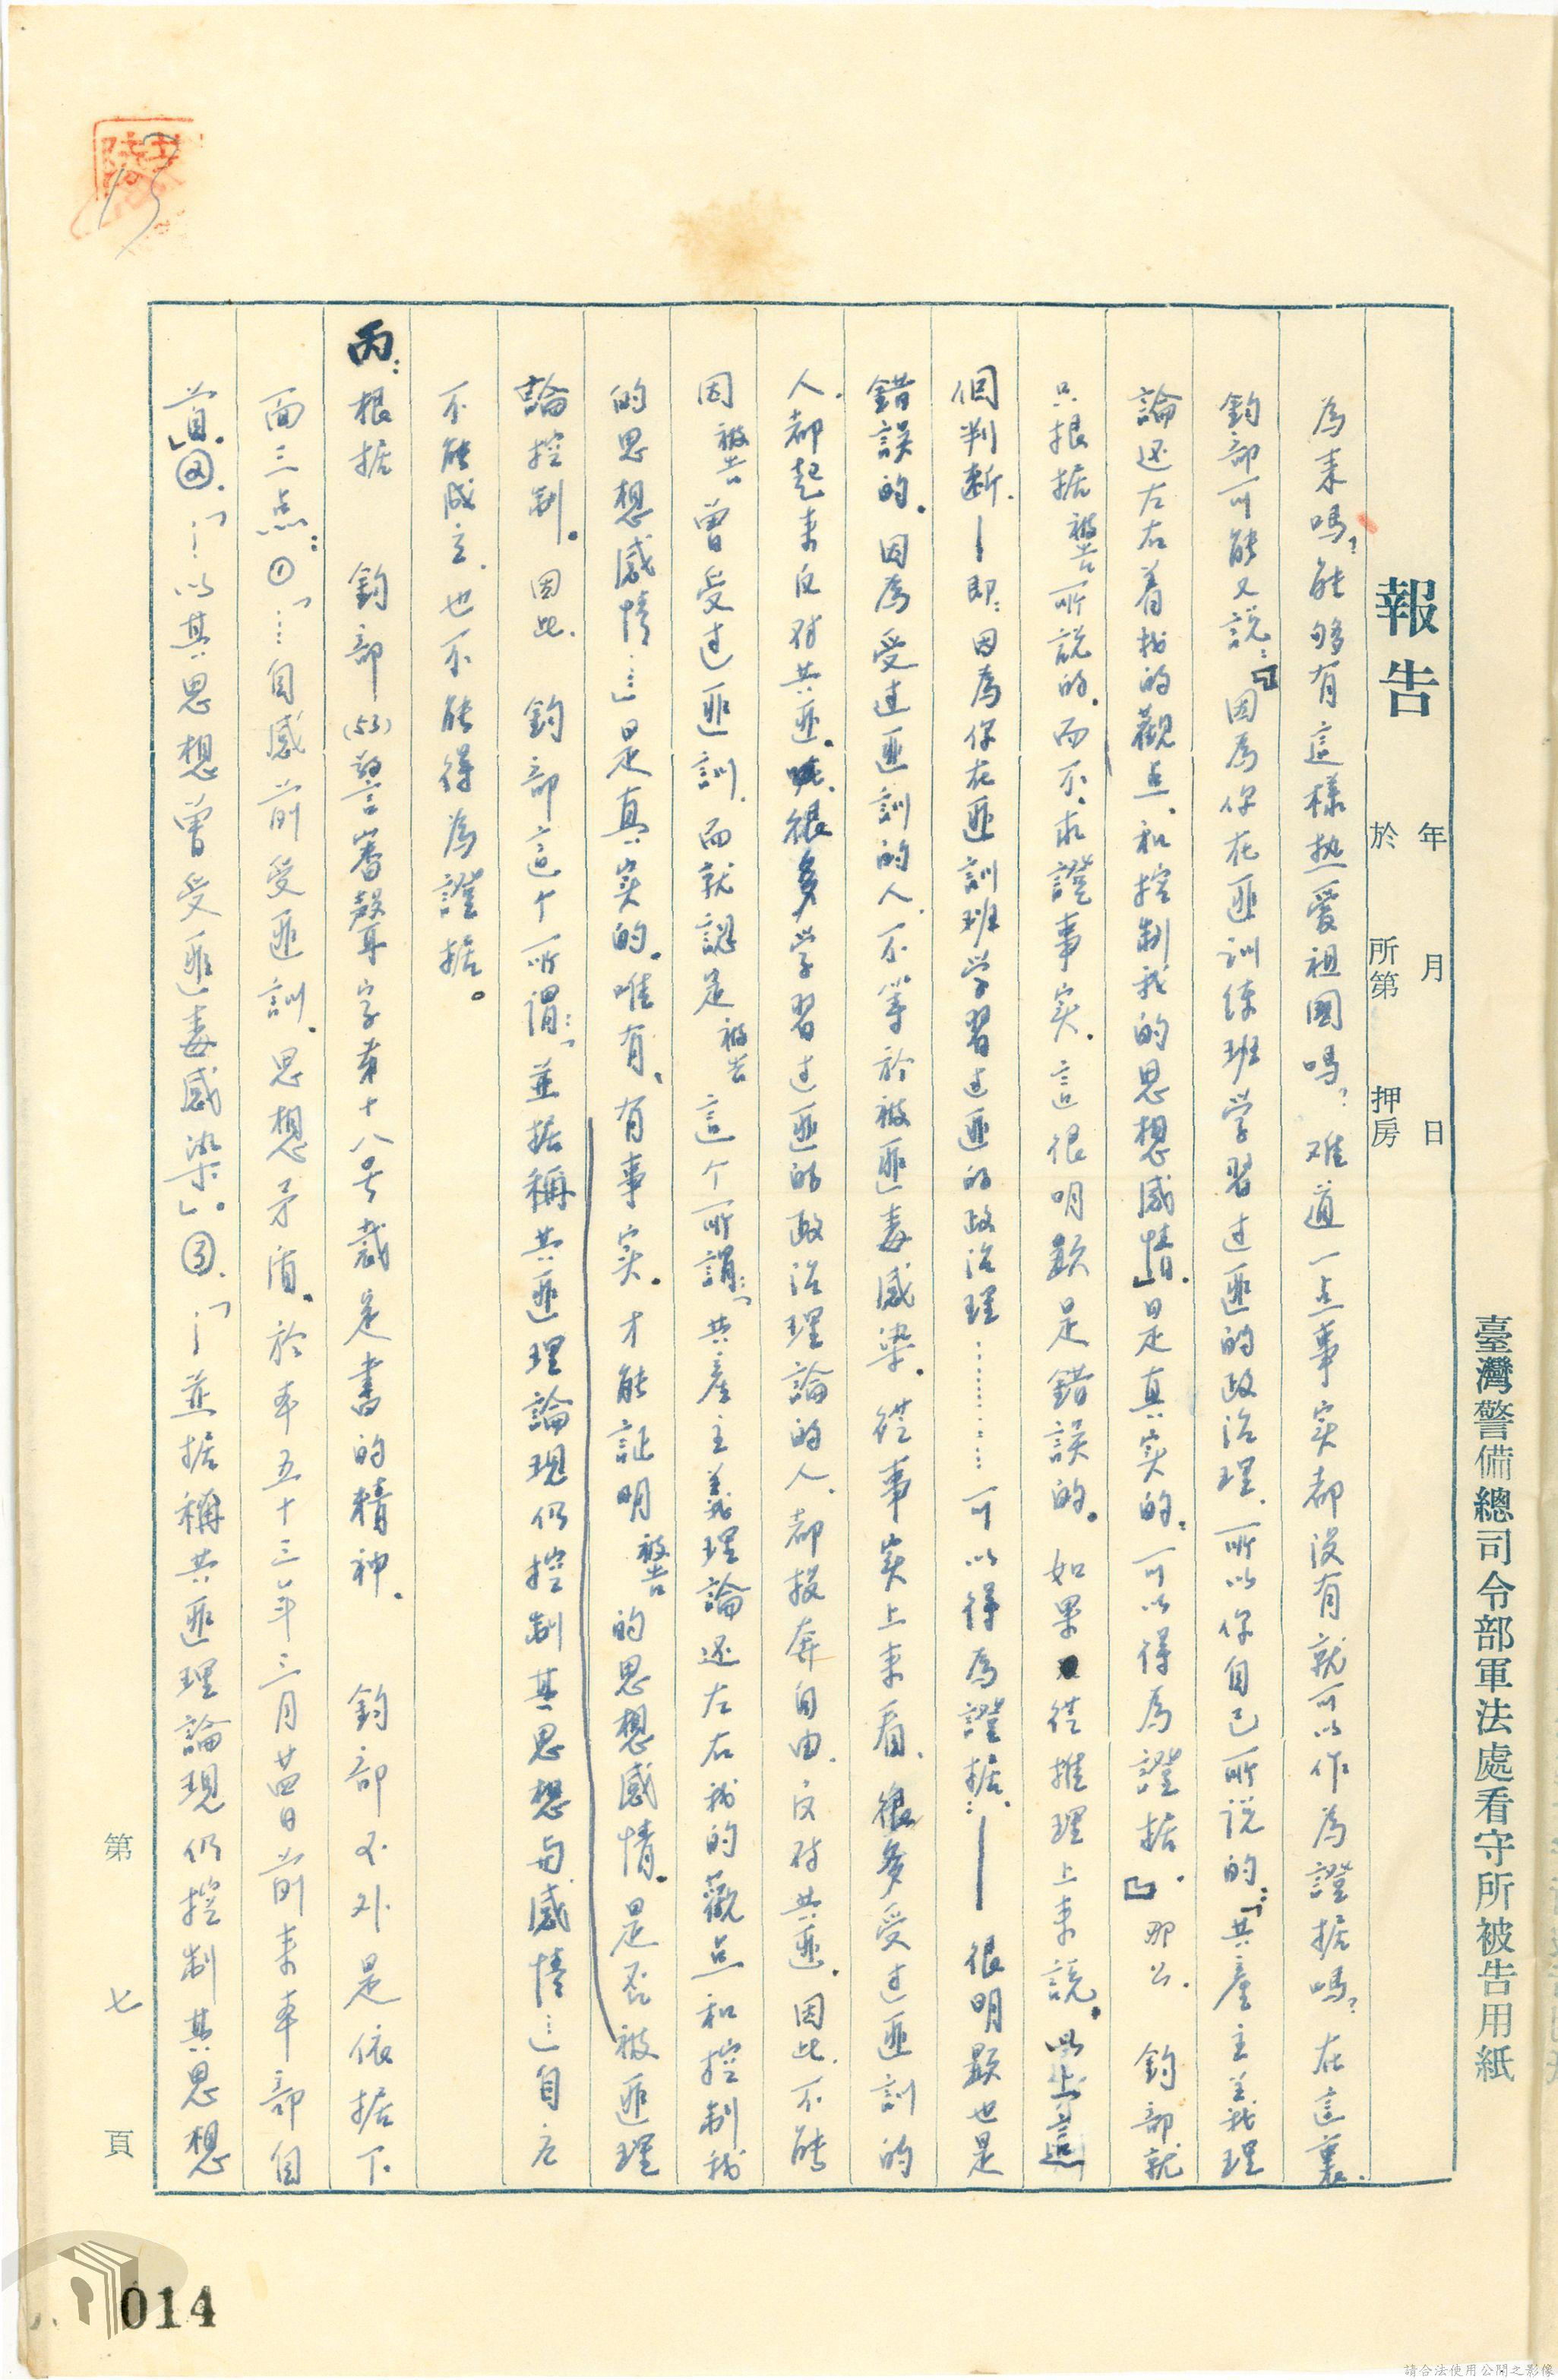 臺灣警備總司令部軍法處看守所被告用紙
報告
年 月 日
於 所第 押房
為来嗎?能够有這樣热爱祖國嗎?难道一点事实都没有就可以作為證据嗎?在這裏.
鈞部可能又説:『因為你在匪训练班学習过匪的政治理.所以你自己所说的:「共産主義理
論还左右着我的觀点、和控制我的思想感情」.是真实的.可以得為證据』.那么.鈞部就
只根据被告所説的.而不求證事实.這很明顯是錯誤的.如果從推理上来説.這
個判断.—即:因為你在匪訓班学習过匪的政治理………可以得為證据.—很明顯也是
錯誤的.因為受过匪訓的人.不等於被匪毒感染.從事实上来看.很多受过匪訓的
人.都起来反对共匪.很多学習过匪的政治理論的人.都投奔自由.反对共匪.因此.不能
因被告曾受过匪訓.而就認是被告這个所謂:「共産主義理論还左右我的觀点和控制我
的思想感情…」是真实的.唯有、有事实.才能証明被告的思想感情.是否被匪理
論控制.因此.鈞部這个所謂:「並据稱共匪理論現仍控制其思想与感情…」自应
不能成立.也不能得為證据。
丙:根据 鈞部(53)警審聲字第十八号裁定書的精神.鈞部不外是依据下
面三点:①「…自感前受匪訓.思想矛盾.於本五十三年三月廿四日前来本部自
首」.②.「…以其思想曾受匪毒感染」.③.「…並据稱共匪理論現仍控制其思想
第 七 頁
014
請合法使用公開之影像